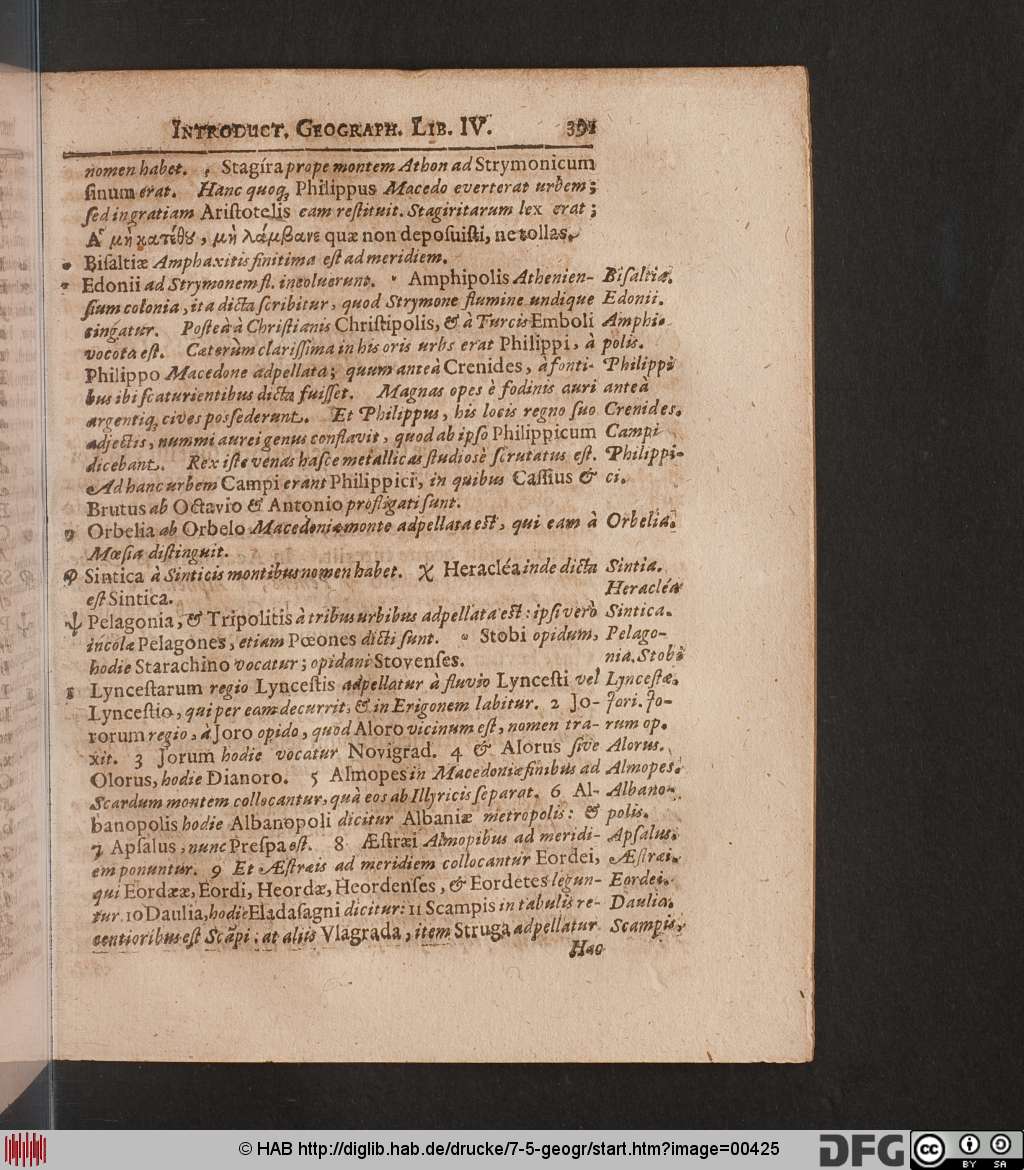 INTRODUCT. GEOGRAPH. LIB. IV. 391
nomen habet. Stagira prope montem Athon ad Strymonicum
ſinum erat. Hanc quoq; Philippus Macedo everterat urbem;
ſed in gratiam Ariſtotelis eam reſtituit. Stagiritarum lex erat;
Ἃ μὴ κατέθȣ, μὴ λάμβανε quæ non depoſuiſti, ne tollas.
Biſaltiæ Amphaxitis finitima eſt ad meridiem.
Edonii ad Strymonem fl. incoluerunt. Amphipolis Athenien- Biſaltiæ.
ſium colonia, ita dicta ſcribitur, quod Strymone flumine undique Edonii.
cingatur. Poſtea à Chriſtianis Chriſtipolis, & à Turcis Emboli Amphi-
vocota eſt. Cæterùm clariſſima in his oris urbs erat Philippi, à polis.
Philippo Macedone adpellata; quum anteà Crenides, à fonti- Philippi
bus ibi ſcaturientibus dicta fuiſſet. Magnas opes è fodinis auri anteà
argentiq; cives poſſederunt. Et Philippus, his locis regno ſuo Crenides.
adjectis, nummi aurei genus conflavit, quod ab ipſo Philippicum Campi
dicebant. Rex iſte venas haſce metallicas ſtudiosè ſcrutatus eſt. Philippi-
Ad hanc urbem Campi erant Philippici, in quibus Caſſius & ci.
Brutus ab Octavio & Antonio profligati ſunt.
Orbelia ab Orbelo Macedoniæ monte adpellata eſt, qui eam à Orbelia.
Mœſia diſtinguit.
Sintica à Sinticis montibus nomen habet. χ Heracléa inde dicta Sintia.
eſt Sintica. Heracléa
Pelagonia, & Tripolitis à tribus urbibus adpellata eſt: ipſi verò Sintica.
incolæ Pelagones, etiam Pœones dicti ſunt. Stobi opidum, Pelago-
hodie Starachino vocatur; opidani Stovenſes. nia. Stobi
Lynceſtarum regio Lynceſtis adpellatur à fluvio Lynceſti vel Lynceſtæ.
Lynceſtio, qui per eam decurrit, & in Erigonem labitur. 2 Jo- Jori. Jo-
rorum regio, à Joro opido, quod Aloro vicinum eſt, nomen tra- rum op.
xit. 3 Jorum hodie vocatur Novigrad. 4 & Alorus ſive Alorus.
Olorus, hodie Dianoro. 5 Almopes in Macedoniæ finibus ad Almopes.
Scardum montem collocantur, quà eos ab Illyricis ſeparat. 6 Al- Albano-
banopolis hodie Albanopoli dicitur Albaniæ metropolis: & polis.
7 Apſalus, nunc Preſpa eſt. 8 Æſtræi Almopibus ad meridi- Apſalus.
em ponuntur. 9 Et Æſtræis ad meridiem collocantur Eordei, Æſtræi.
qui Eordææ, Eordi, Heordæ, Heordenſes, & Eordetes legun- Eordei.
tur. 10 Daulia, hodie Eladaſagni dicitur: 11 Scampis in tabulis re- Daulia.
centioribus eſt Scãpi: at aliis Vlagrada, item Struga adpellatur Scampis.
Hac
© HAB http://diglib.hab.de/drucke/7-5-geogr/start.htm?image=00425
DFG
cc
BY SA